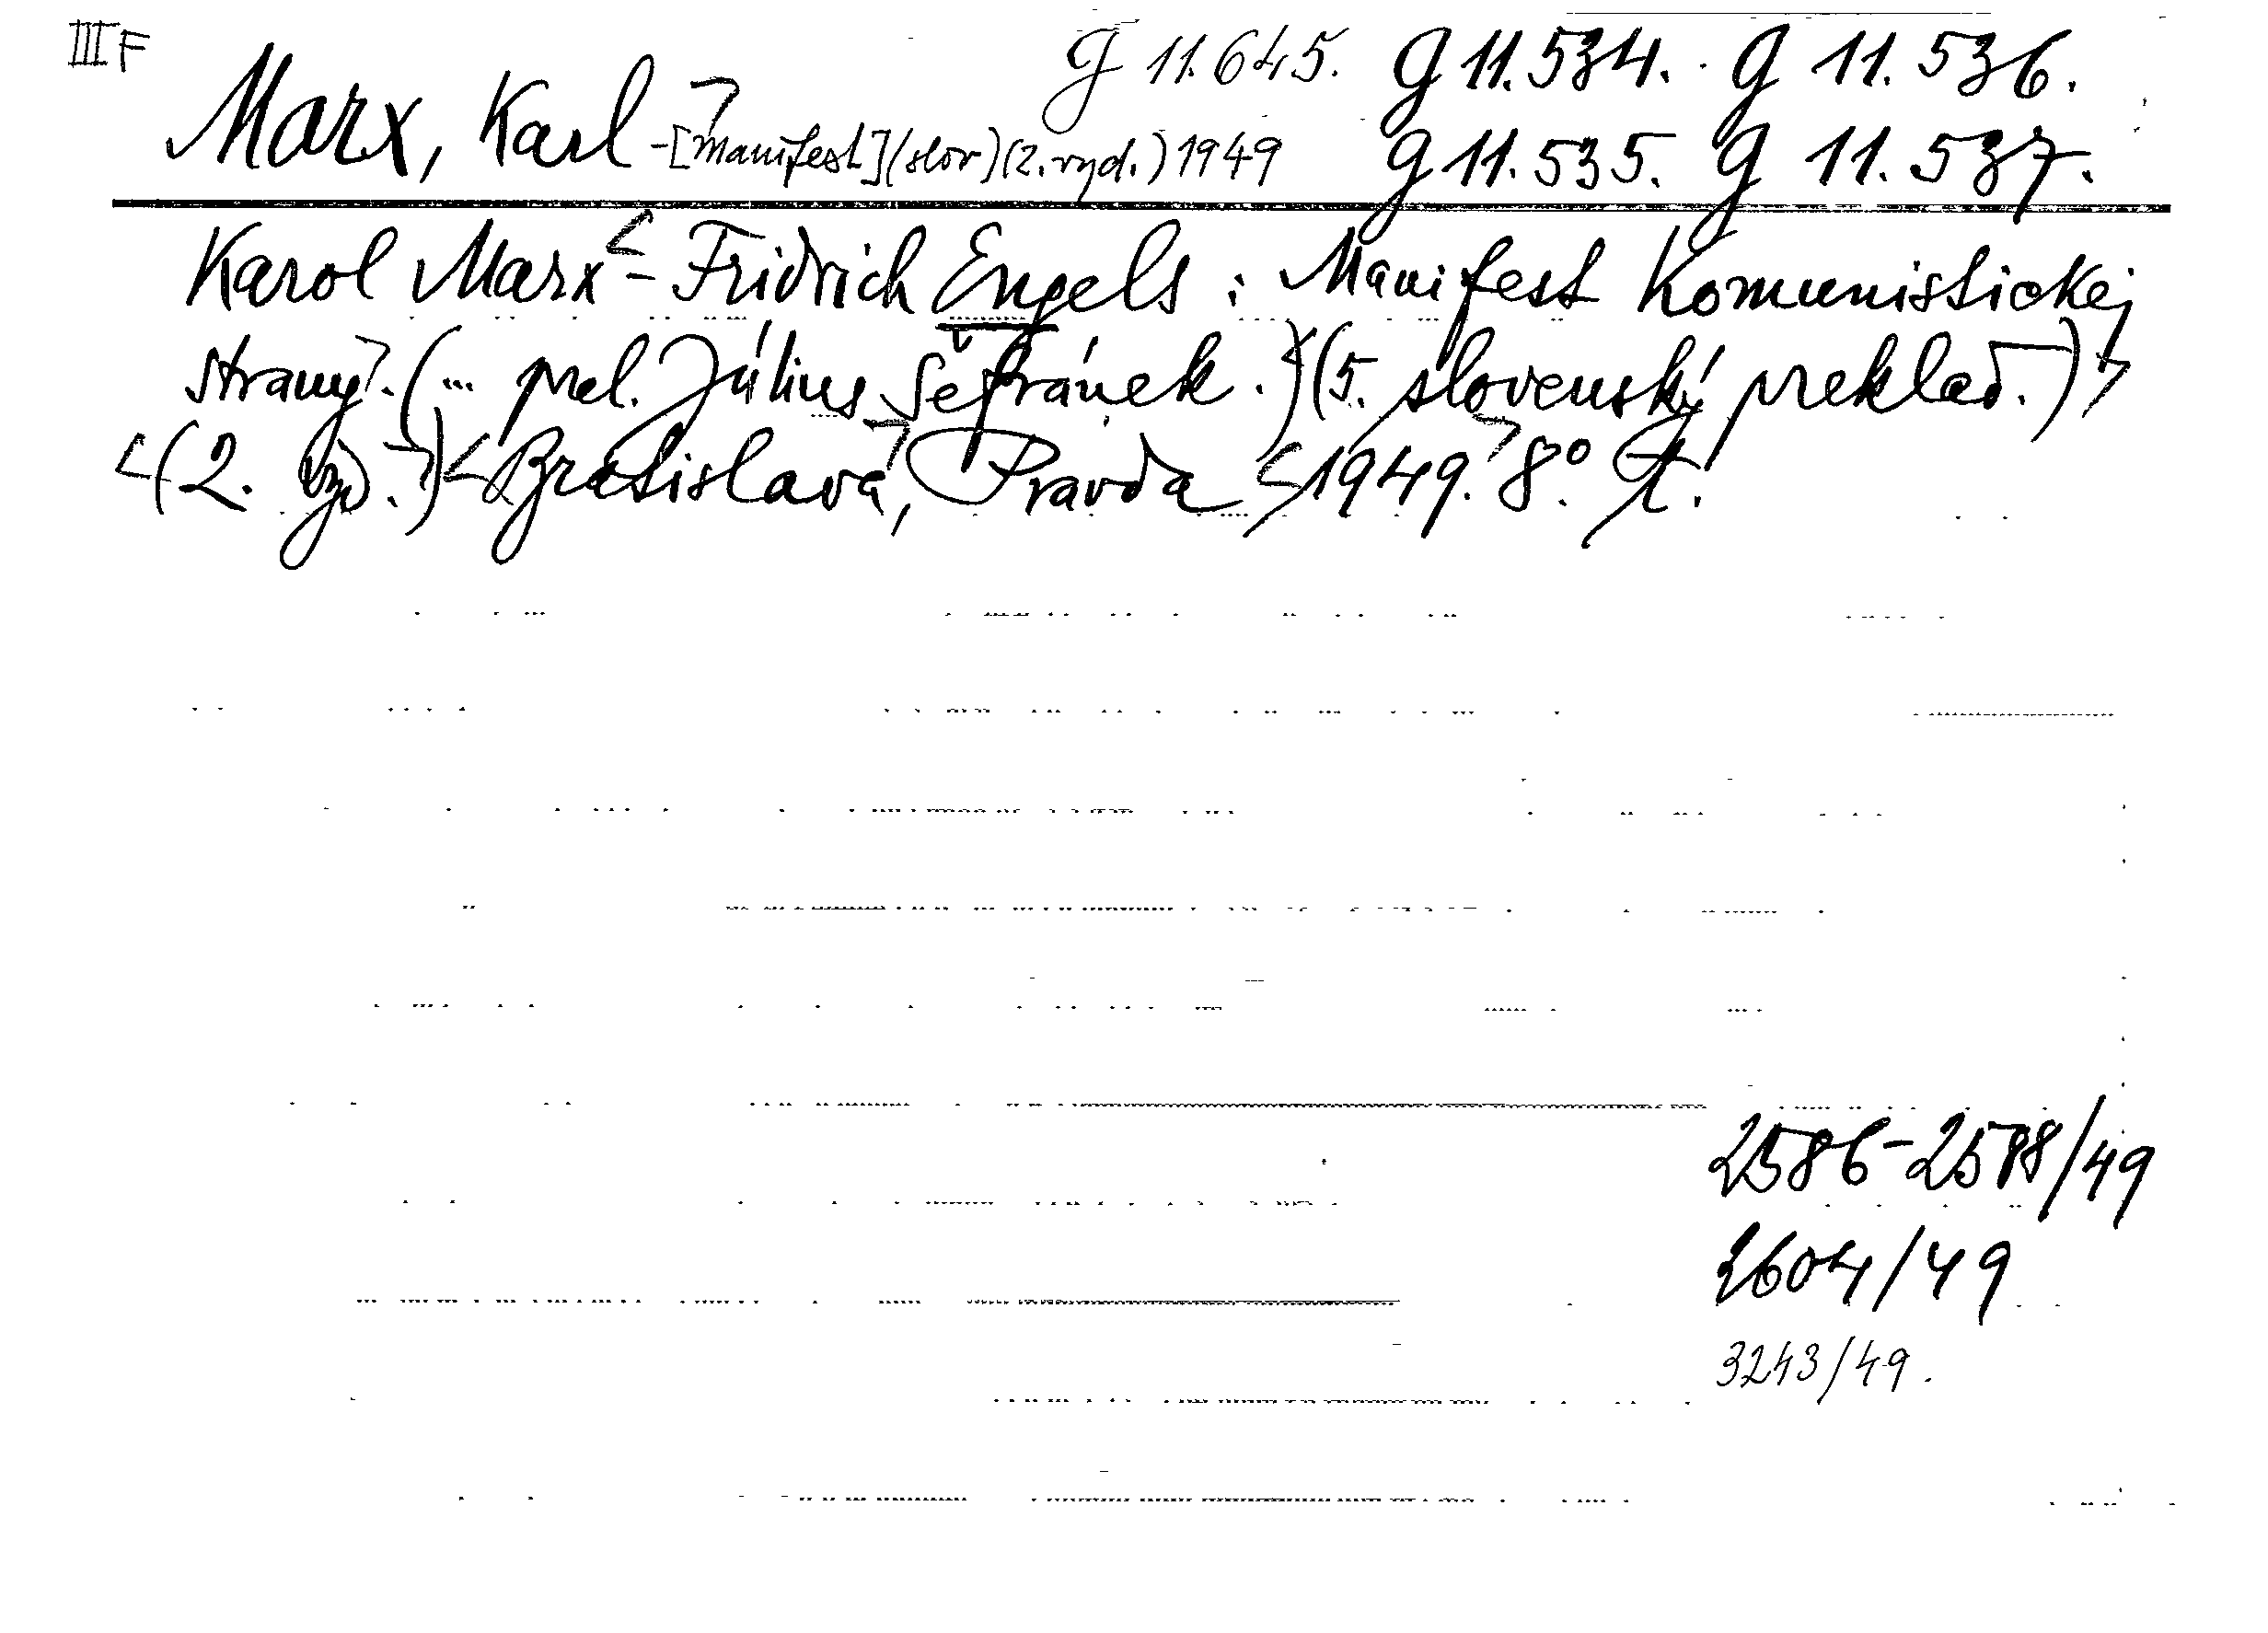 III F
g 11.645. g 11.534. g 11.536.
Marx, Karl -[Manifest](slov)(2.vyd.) 1949 g 11.535. g 11.537.
Karol Marx - Fridrich Engels : Manifest Komunistickej
strany. (... prel. Július Šefránek.) (5. slovenský preklad.)
(2. vyd.) Bratislava, Pravda 1949. 8°.
2586-2588/49
2604/49
3243/49.